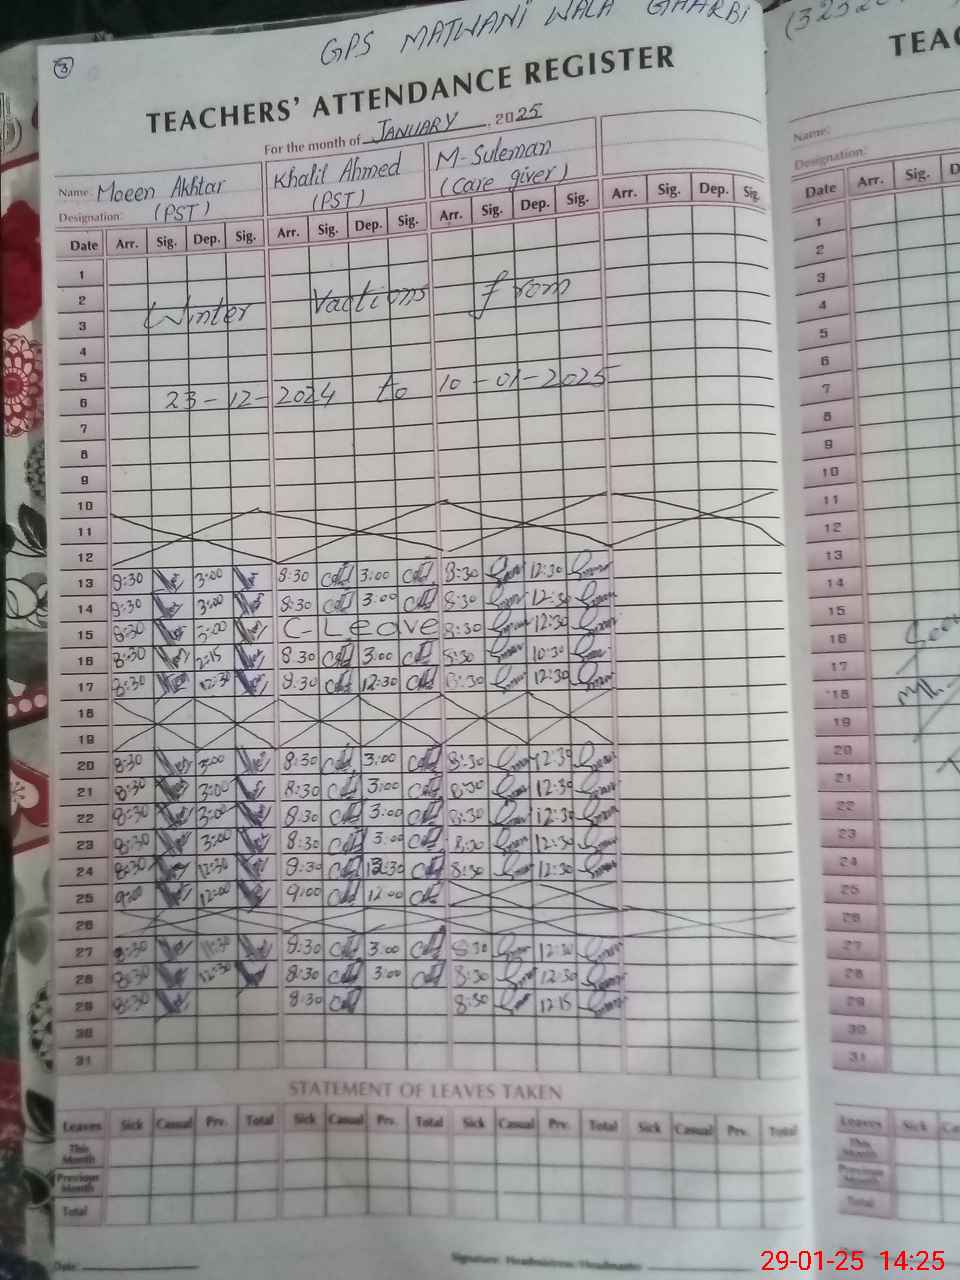 GPS MATWANI WALA GHARBI
3
TEACHERS' ATTENDANCE REGISTER
For the month of JANUARY, 2025
Name: Moeen Akhtar Khalil Ahmed M-Suleman
Designation: (PST) (PST) (Care giver)
Date Arr. Sig. Dep. Sig. Arr. Sig. Dep. Sig. Arr. Sig. Dep. Sig. Arr. Sig. Dep. Sig.
1
2 Winter Vactions from
3
4
5
6 23-12-2024 to 10-01-2025
7
8
9
10
11
12
13 8:30 3:00 8:30 3:00 8:30 12:30
14 8:30 3:00 8:30 3:00 8:30 12:30
15 8:30 3:00 C-Leave 8:30 12:30
16 8:30 2:15 8:30 3:00 8:30 10:30
17 8:30 12:30 8:30 12:30 8:30 12:30
18
19
20 8:30 3:00 8:30 3:00 8:30 12:30
21 8:30 3:00 8:30 3:00 8:30 12:30
22 8:30 3:00 8:30 3:00 8:30 12:30
23 8:30 3:00 8:30 3:00 8:30 12:30
24 8:30 12:30 8:30 12:30 8:30 12:30
25 9:00 12:00 9:00 12:00
26
27 8:30 8:30 3:00 8:30 12:30
28 8:30 12:30 8:30 3:00 8:30 12:30
29 8:30 8:30 8:30 12:15
30
31
STATEMENT OF LEAVES TAKEN
Leaves Sick Casual Prv. Total Sick Casual Prv. Total Sick Casual Prv. Total Sick Casual Prv. Total
This Month
Previous Month
Total
Date: Signature: Headmistress/Headmaster
TEAC
Name:
Designation:
Date Arr. Sig. D
1
2
3
4
5
6
7
8
9
10
11
12
13
14
15
16
17
18
19
20
21
22
23
24
25
26
27
28
29
30
31
Leaves Sick Ca
This Month
Previous Month
Total
29-01-25 14:25